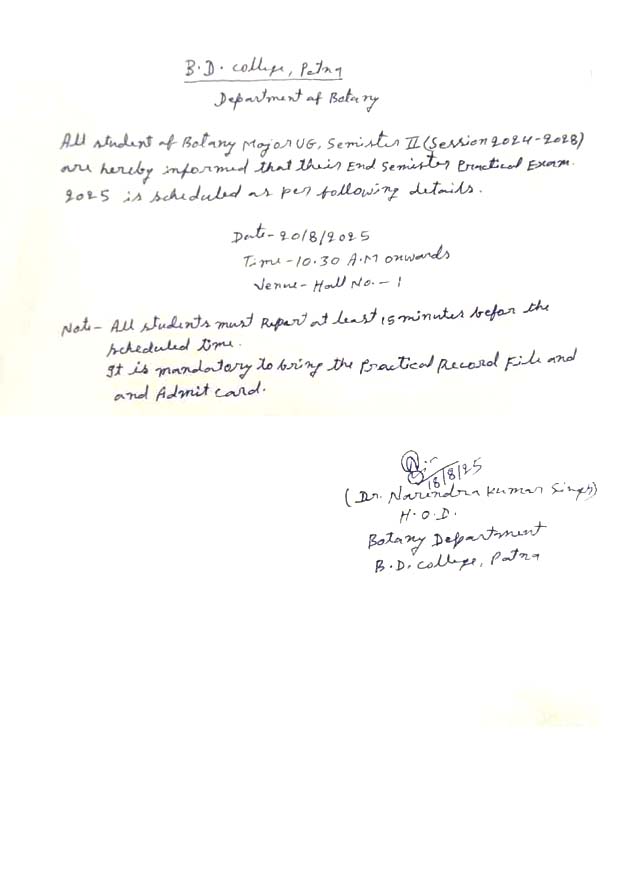 B.D. college, Patna
Department of Botany
All student of Botany Major UG, Semister II (Session 2024-2028)
are hereby informed that their End Semister Practical Exam.
2025 is scheduled as per following details.
Date- 20/8/2025
Time - 10.30 A.M onwards
Venue- Hall No. - 1
Note- All students must Report at least 15 minutes befor the
scheduled time.
It is mandatory to bring the Practical Record File and
and Admit card.
18/8/25
(Dr. Narendra Kumar Singh)
H.O.D.
Botany Department
B.D. college, Patna